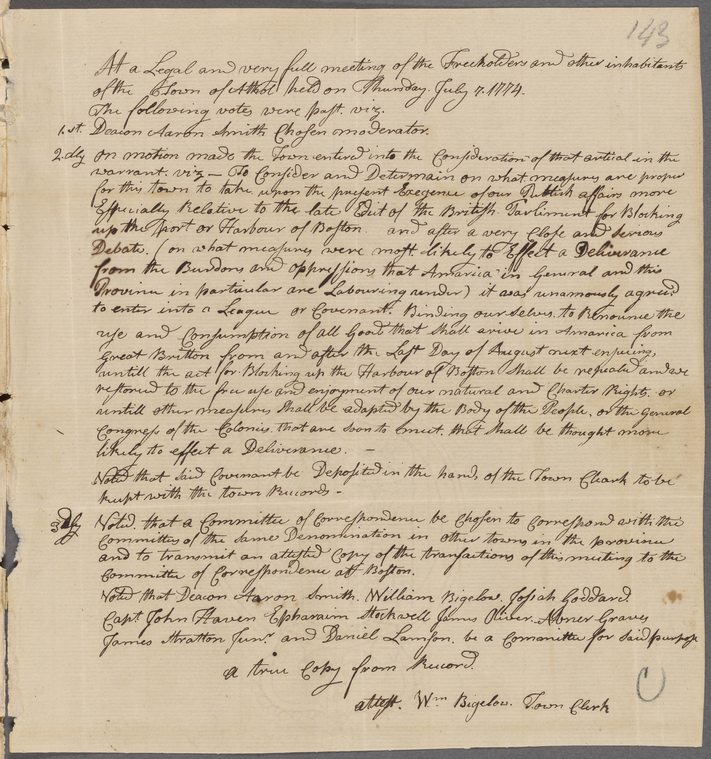 143
At a Legal and very full meeting of the Freeholders and other inhabitants
of the Town of Athol held on Thursday. July 7. 1774.
The following votes were past. viz.
1.st. Deacon Aaron Smith Chosen moderator.
2.dly on motion made the Town entered into the Consideration of that artical in the
warrant. viz — To Consider and Determain on what measures are proper
for this town to take upon the present Exegence of our Publick affairs more
Especially Relative to the late Edict of the British Parliment for Blocking
up the Port or Harbour of Boston. and after a very Close and serious
Debate. (on what measures were most likely to Effect a Deliverance
from the Burdons and oppressions that America in General and this
Province in particular are Labouring under) it was unamously agreed
to enter into a League or Covenant. Binding our selves. to Renounce the
use and Consumption of all Good that shall arive in America from
Great Britton from and after the Last Day of August next ensuing,
untill the act for Blocking up the Harbour of Boston shall be repeald and we
restored to the free use and enjoyment of our natural and Charter Rights. or
untill other measures shall be adapted by the Body of the People, or the General
Congress of the Colonies. that are soon to meet. that shall be thought more
likely to effect a Deliverance. —
Voted that said Covenant be Deposited in the hands of the Town Cleark to be
kept with the town Records -
3dly Voted. that a Committee of Correspondence be Chosen to Correspond with the
Committees of the same Denomination in other towns in the province
and to transmit an attested Copy of the transactions of this meeting to the
Committee of Correspondence att Boston.
Voted that Deacon Aaron Smith. William Bigelow. Josiah Goddard.
Capt. John Haven Epharaim Stockwell James Oliver. Abner Graves
James Stratton Junr. and Daniel Lamson. be a Comamittee for said purpose
a true Copy from Record.
attest. Wm Bigelow. Town Clerk